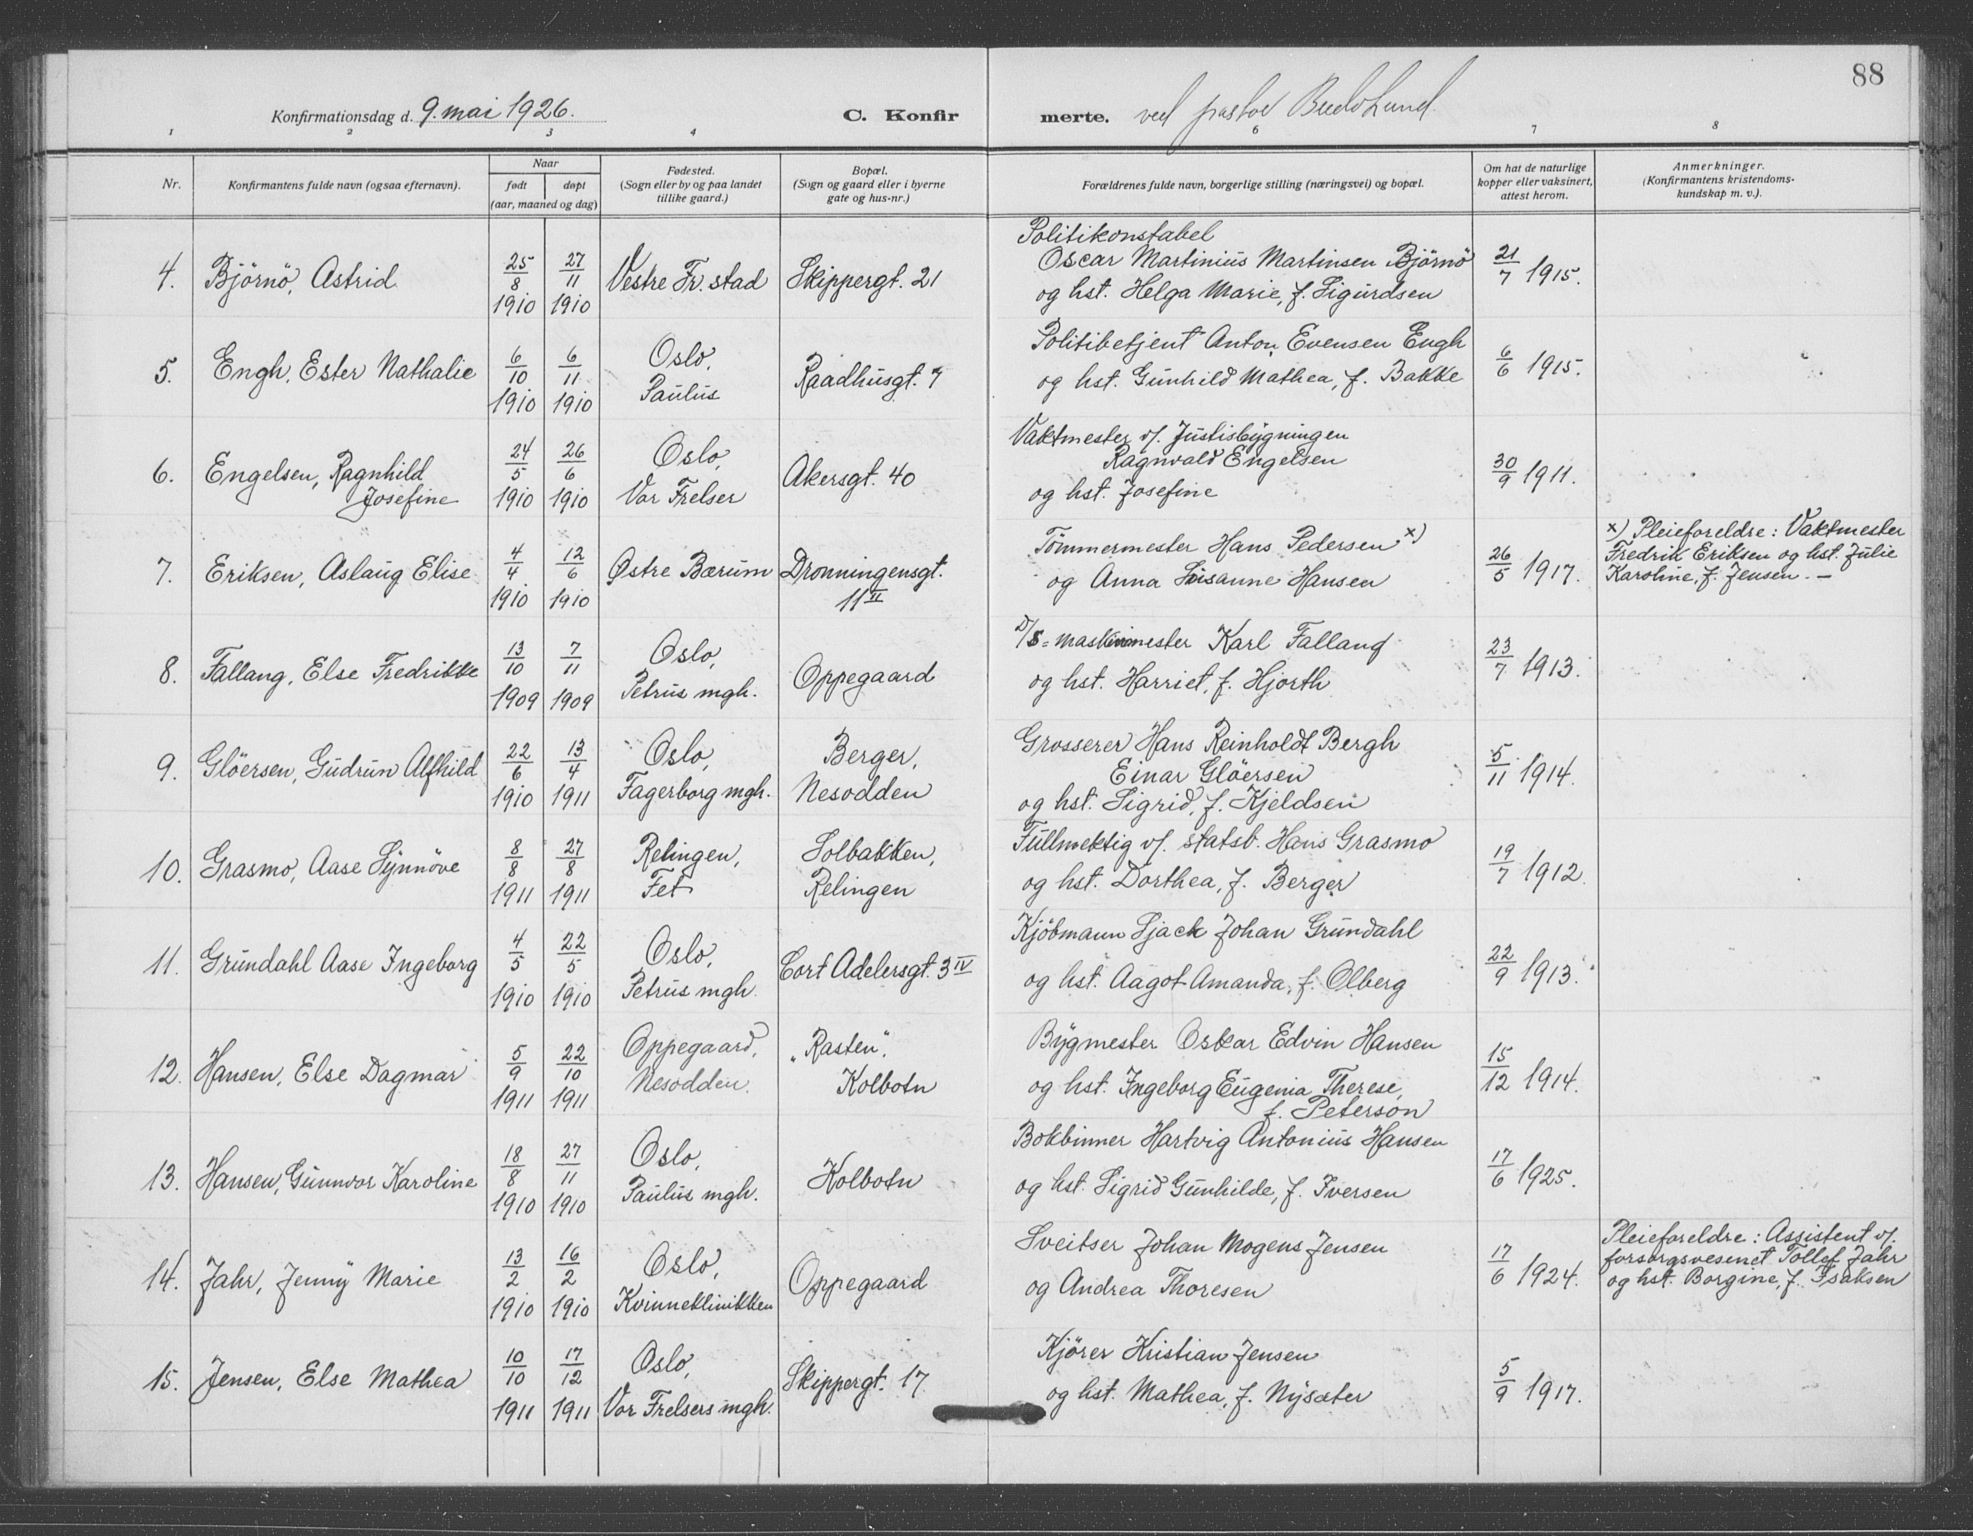 88
Konfirmationsdag d. 9. mai 1926. C. Konfirmerte. ved pastor
1 2 3 4 6 7 8
Nr. Konfirmantens fulde navn (ogsaa efternavn). Naar født døpt (aar, maaned og dag) Fødested. (Sogn eller by og paa landet tillike gaard.) Bopæl. (Sogn og gaard eller i byerne gate og hus-nr.) Forældrenes fulde navn, borgerlige stilling (næringsvei) og bopæl. Om hat de naturlige kopper eller vaksinert, attest herom. Anmerkninger. (Konfirmantens kristendoms-kundskap m. v.).
4. Björnö, Astrid 25/8 1910 27/11 1910 Vestre Fr. stad Skippergt. 21 Politikonstabel Oscar Martinius Martinsen Björnö og hst. Helga Marie, f. Sigurdsen 21/7 1915.
5. Engh, Ester Nathalie 6/10 1910 6/11 1910 Oslo, Paulus Raadhusgt. 7 Politibetjent Anton Evensen Engh og hst. Gunhild Mathea, f. Bakke 6/6 1915.
6. Engelsen, Ragnhild Josefine 24/5 1910 26/6 1910 Oslo, Vor Frelser Akersgt. 40 Vaktmester v/. Justisbygningen Ragnvald Engelsen og hst. Josefine 30/9 1911.
7. Eriksen, Aslaug Elise 4/4 1910 12/6 1910 Østre Bærum Dronningensgt. 11 II Tömmermester Hans Pedersen x) og Anna Susanne Hansen 26/5 1917. x) Pleieforeldre: Vaktmester Fredrik Eriksen og hst. Julie Karoline, f. Jensen. —
8. Fallang, Else Fredrikke 13/10 1909 7/11 1909 Oslo, Petrus mgh. Oppegaard D/S= maskinmester Karl Fallang og hst. Harriet, f. Hjorth 23/7 1913.
9. Glöersen, Gudrun Alfhild 22/6 1910 13/4 1911 Oslo, Fagerborg mgh. Berger, Nesodden Grosserer Hans Reinholdt Bergh Einar Glöersen og hst. Sigrid, f. Kjeldsen 5/11 1914.
10. Grasmo, Aase Synnöve 8/8 1911 27/8 1911 Relingen, Fet Solbakken, Relingen Fullmektig v/. statsb. Hans Grasmo og hst. Dorthea, f. Berger 19/7 1912.
11. Grundahl Aase Ingeborg 4/5 1910 22/5 1910 Oslo, Petrus mgh. Cort Adelersgt. 3 IV Kjöbmann Sjack Johan Grundahl og hst. Aagot Amanda, f. Olberg 22/9 1913.
12. Hansen, Else Dagmar 5/9 1911 22/10 1911 Oppegaard, Nesodden. "Rasten", Kolbotn Bygmester Oskar Edvin Hansen og hst. Ingeborg Eugenia Therese, f. Peterson 15/12 1914.
13. Hansen, Gunnvor Karoline 18/8 1910 27/11 1910 Oslo, Paulus mgh. Kolbotn Bokbinner Hartvig Antonius Hansen og hst. Sigrid Gunhilde, f. Iversen 17/6 1925.
14. Jahr, Jenny Marie 13/2 1910 16/2 1910 Oslo, Kvinneklinikken Oppegaard Sveitser Johan Mogens Jensen og Andrea Thoresen 17/6 1924. Pleieforeldre: Assistent v/. forsorgsvesenet Tollef Jahr og hst. Borgine, f. Isaksen
15. Jensen, Else Mathea 10/10 1911 17/12 1911 Oslo, Vor Frelsers mgh. Skippergt. 17 Kjörer Kristian Jensen og hst. Mathea, f. Nysæter 5/9 1917.